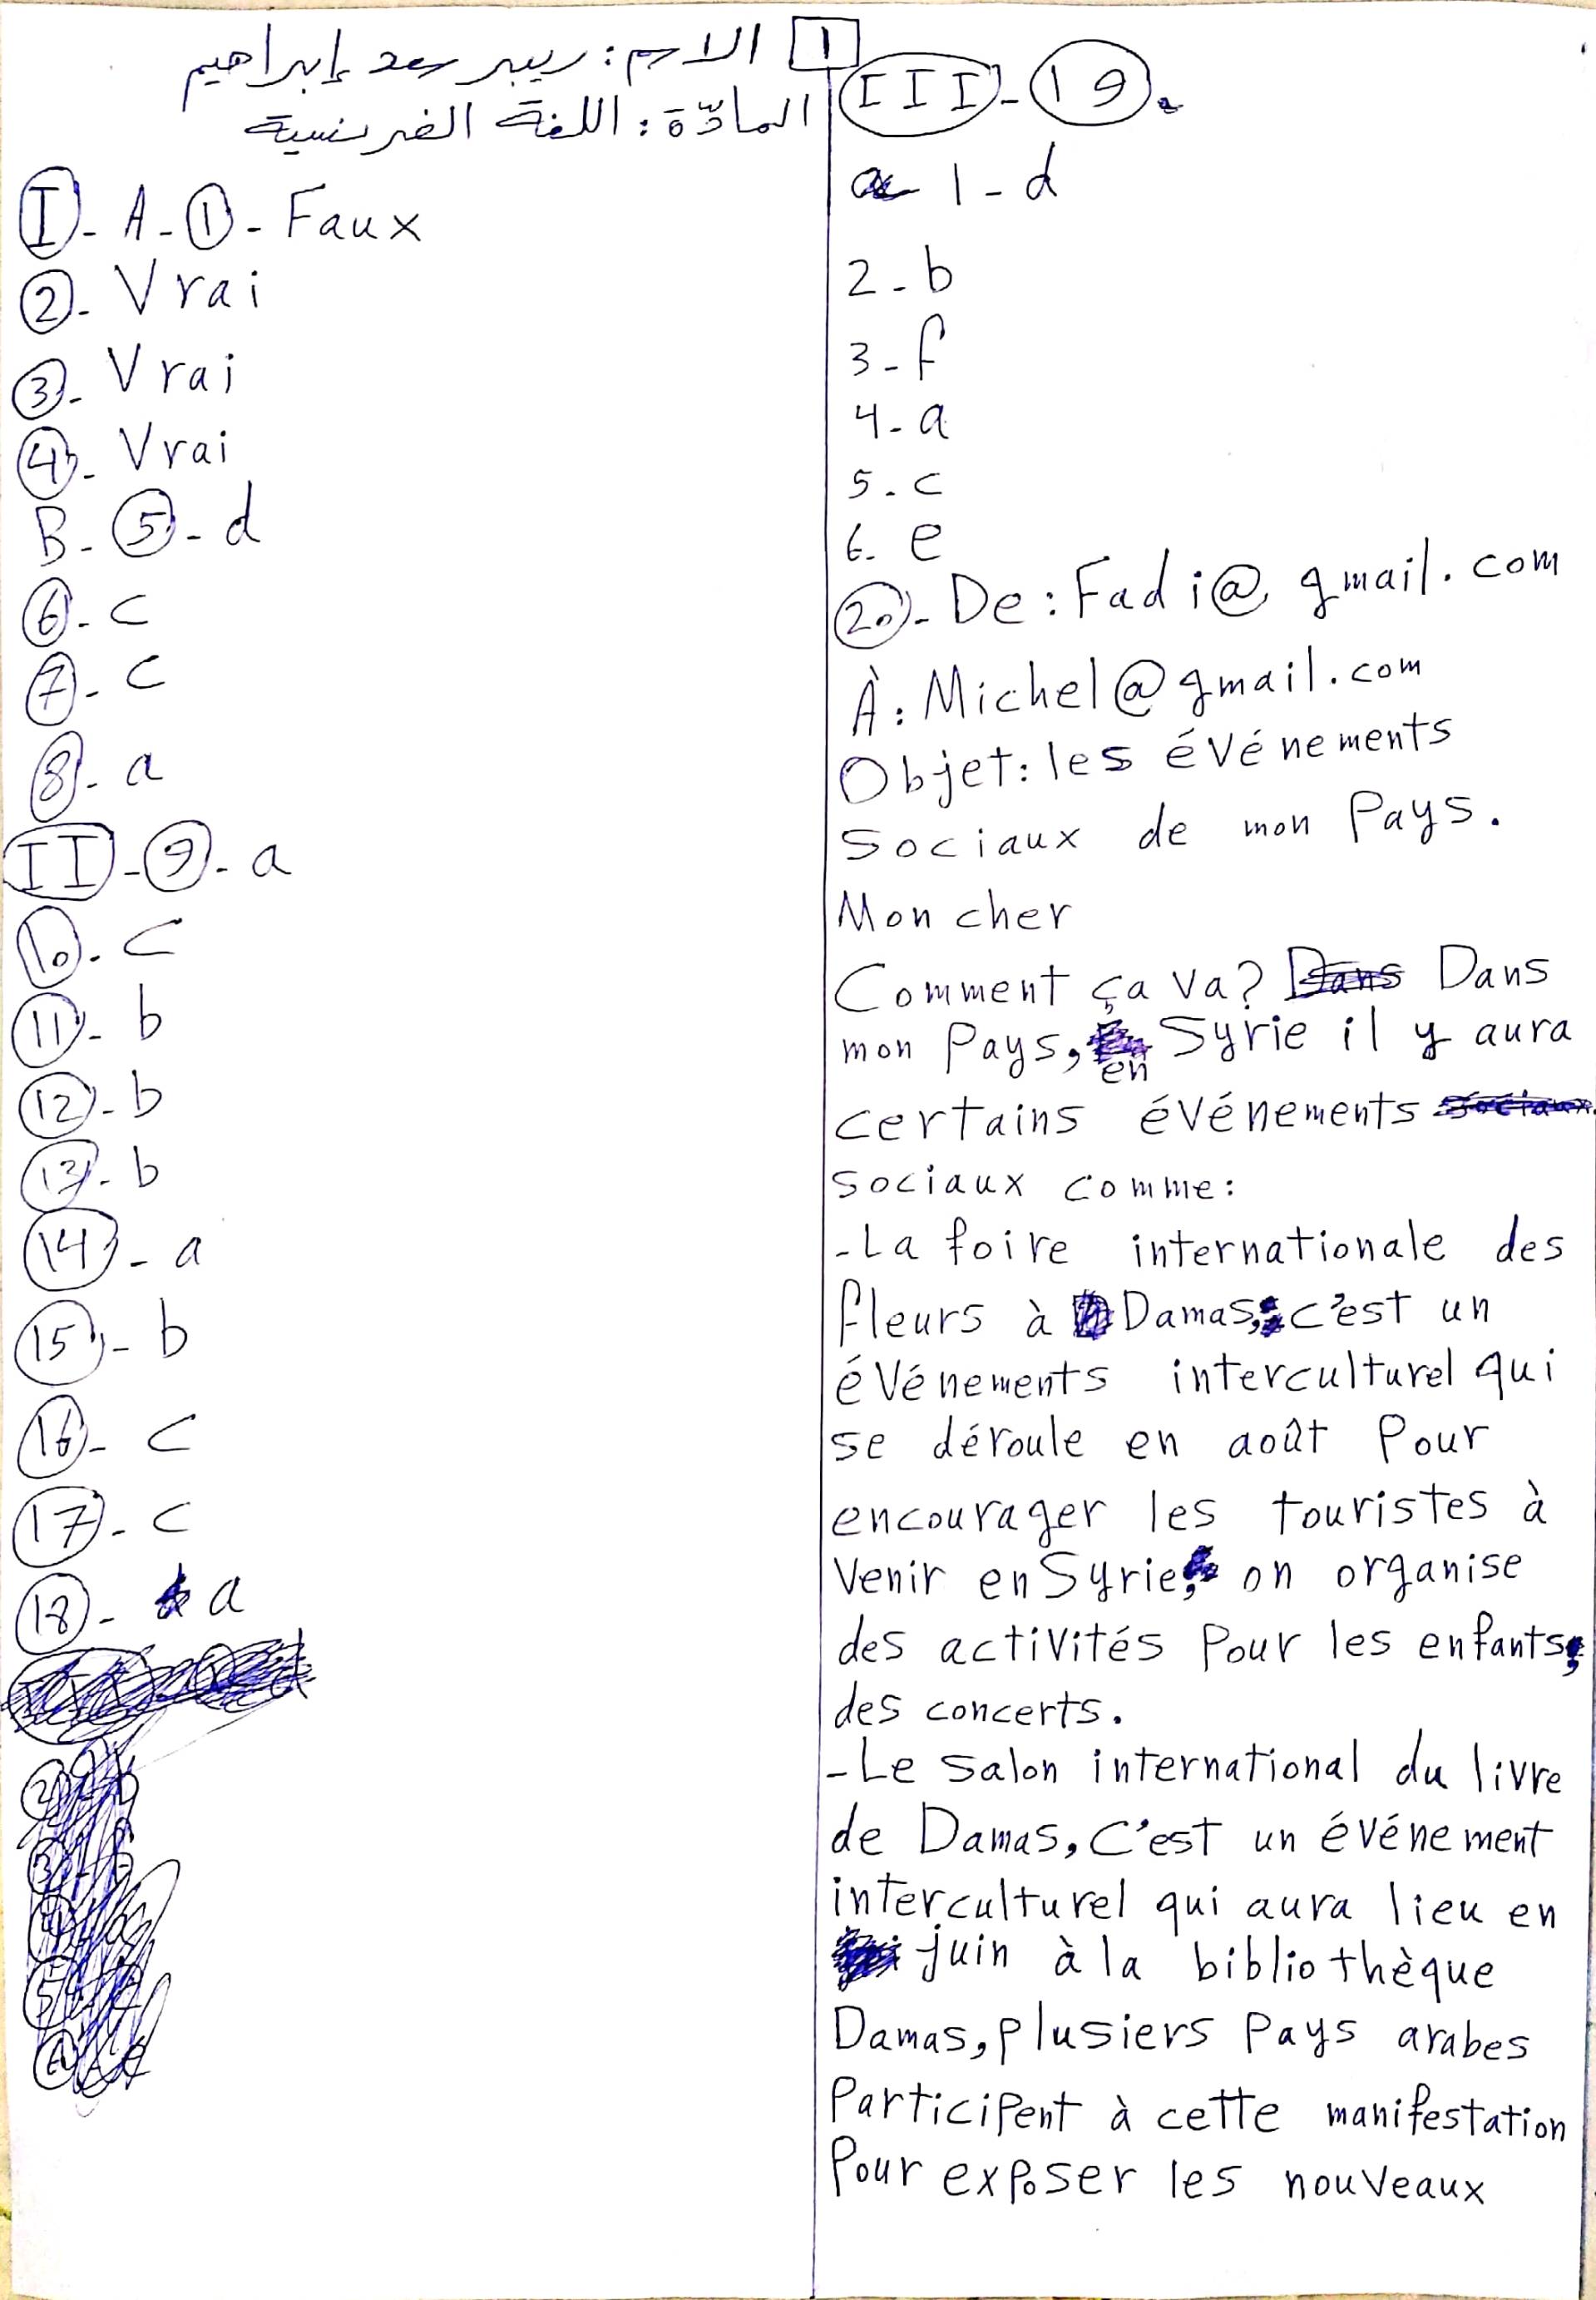 1
الاسم: ريبر سعد إبراهيم
المادّة: اللغة الفرنسية
I - A - 1 - Faux
2 - Vrai
3 - Vrai
4 - Vrai
B - 5 - d
6 - c
7 - c
8 - a
II - 9 - a
10 - c
11 - b
12 - b
13 - b
14 - a
15 - b
16 - c
17 - c
18 - a
III - 19.
1 - d
2 - b
3 - f
4 - a
5 - c
6 - e
20 - De : Fadi@gmail.com
À : Michel@gmail.com
Objet : les événements
sociaux de mon Pays.
Mon cher
Comment ça va? Dans
mon Pays, en Syrie il y aura
certains événements
sociaux comme :
- La foire internationale des
fleurs à Damas, c'est un
événements interculturel qui
se déroule en août Pour
encourager les touristes à
Venir en Syrie, on organise
des activités Pour les enfants,
des concerts.
- Le salon international du livre
de Damas, c'est un événement
interculturel qui aura lieu en
juin à la bibliothèque
Damas, plusiers Pays arabes
ParticiPent à cette manifestation
Pour exPoser les nouveaux